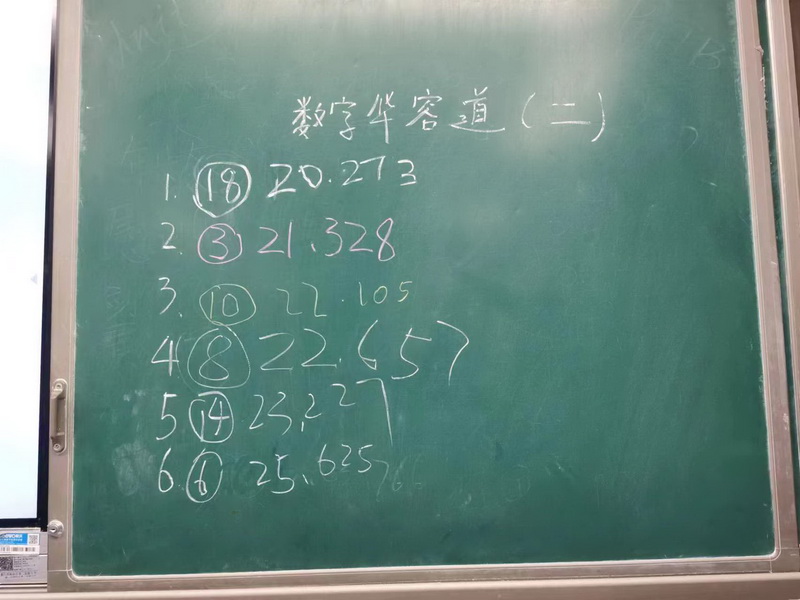 数字华容道(二)
1. ⑱ 20.273
2. ③ 21.328
3. ⑩ 22.105
4 ⑧ 22.657
5 ⑭ 23.227
6. ⑥ 25.625